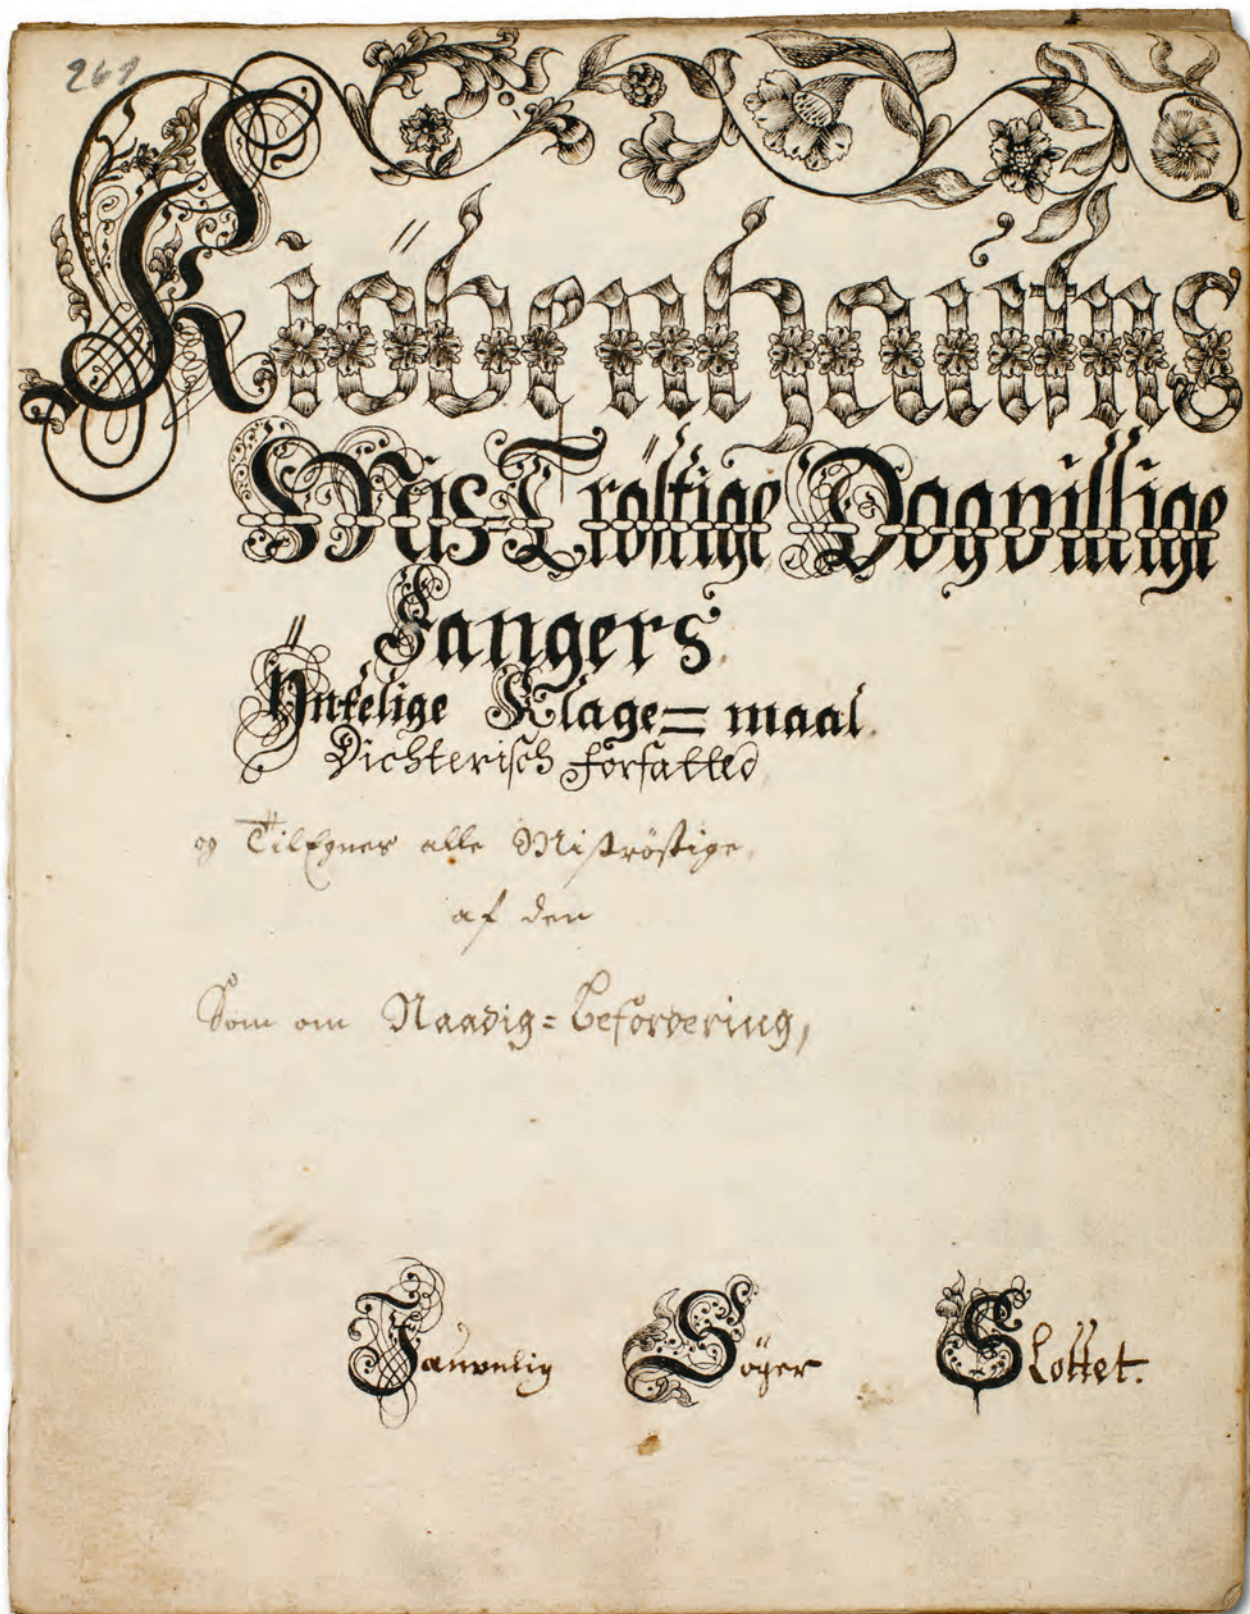 261
Kiöbenhaufns
Mis-Tröstige Dogvillige
Fangers
Ynkelige Klage=maal.
Dichterisch forfatted
og TilEgnes alle Miströstige,
af den
Som om Naadig=befordering,
Jaunlig Söger Slottet.